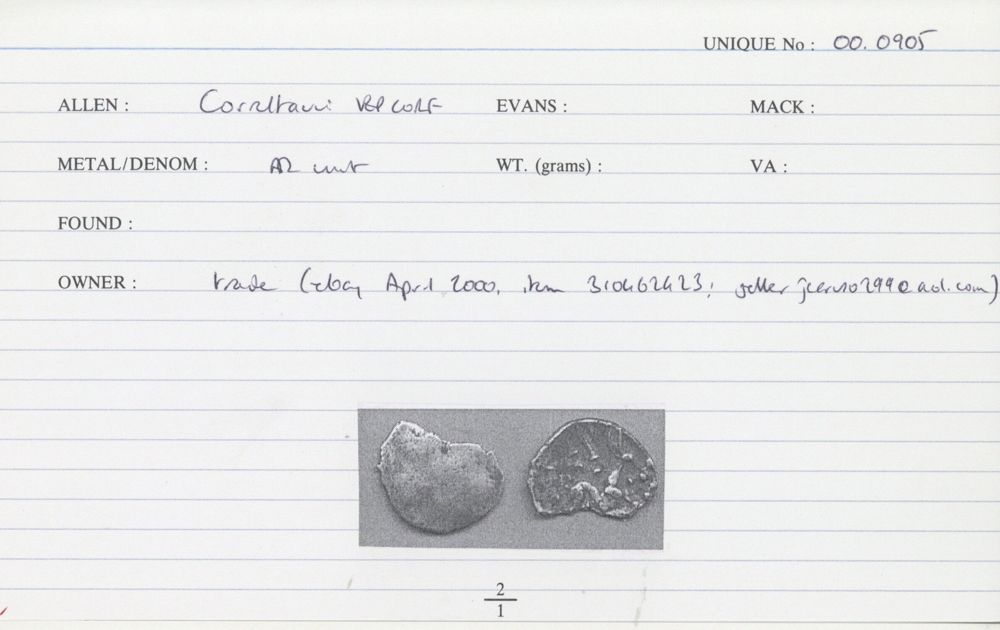 UNIQUE No : 00.0905
ALLEN : Corieltauvi VEP CORF EVANS : MACK :
METAL/DENOM : AR unit WT. (grams) : VA :
FOUND :
OWNER : trade (ebay April 2000, item 310462423; seller
2
1